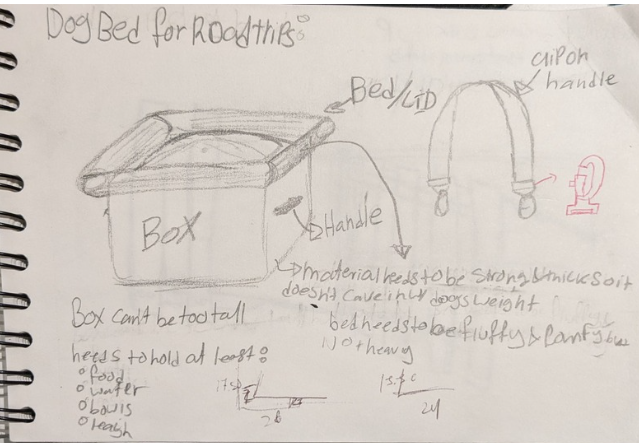 Dog Bed for Roadtrips:
Clip on
handle
Bed/LiD
BOX
Handle
material needs to be strong & thick so it
doesn't cave in w dogs weight
Box can't be too tall
bed needs to be fluffy & Comfy but
Not heavy
needs to hold at least:
food
water
bowls
leash
24